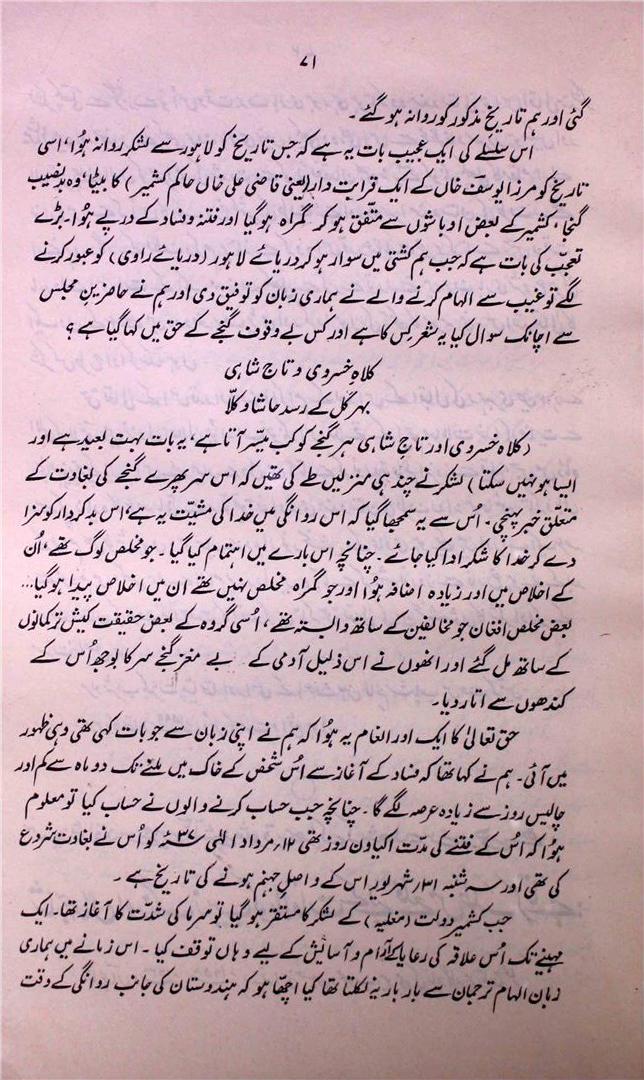 ۷۱
گئی اور ہم تاریخ مذکور کو روانہ ہو گئے۔
اس سلسلے کی ایک عجیب بات یہ ہے کہ جس تاریخ کو لاہور سے لشکر روانہ ہوُا، اسی
تاریخ کو مرزا یوسف خاں کے ایک قرابت دار (یعنی قاضی علی خاں حاکم کشمیر) کا بیٹا، وہ بدنصیب
گنجا، کشمیر کے بعض اوباشوں سے متفق ہو کر گمراہ ہو گیا اور فتنہ و فساد کے درپے ہوُا۔ بڑے
تعجّب کی بات ہے کہ جب ہم کشتی میں سوار ہو کر دریائے لاہور (دریائے راوی) کو عبور کرنے
لگے تو غیب سے الہام کرنے والے نے ہماری زبان کو توفیق دی اور ہم نے حاضرینِ مجلس
سے اچانک سوال کیا یہ شعر کس کا ہے اور کس بے وقوف گنجے کے حق میں کہا گیا ہے؟
کلاہِ خسروی و تاج شاہی
بہر کَل کے رسد حاشا و کلّا
(کلاہ خسروی اور تاج شاہی ہر گنجے کو کب میسّر آتا ہے، یہ بات بہت بعید ہے اور
ایسا ہو نہیں سکتا) لشکر نے چند ہی منزلیں طے کی تھیں کہ اس سر پھرے گنجے کی بغاوت کے
متعلق خبر پہنچی۔ اُس سے یہ سمجھا گیا کہ اس روانگی میں خدا کی مشیّت یہ ہے، اس بدکردار کو سزا
دے کر خدا کا شکر ادا کیا جائے۔ چنانچہ اس بارے میں اہتمام کیا گیا۔ جو مخلص لوگ تھے، اُن
کے اخلاص میں اور زیادہ اضافہ ہوُا اور جو گمراہ مخلص نہیں تھے ان میں اخلاص پیدا ہو گیا...
بعض مخلص افغان جو مخالفین کے ساتھ وابستہ تھے، اُسی گروہ کے بعض حقیقت کیش ترکمانوں
کے ساتھ مل گئے اور انھوں نے اس ذلیل آدمی کے بے مغز گنجے سر کا بوجھ اُس کے
کندھوں سے اتار دیا۔
حق تعالیٰ کا ایک اور انعام یہ ہوُا کہ ہم نے اپنی زبان سے جو بات کہی تھی وہی ظہور
میں آئی۔ ہم نے کہا تھا کہ فساد کے آغاز سے اُس شخص کے خاک میں ملنے تک دو ماہ سے کم اور
چالیس روز سے زیادہ عرصہ لگے گا۔ چنانچہ جب حساب کرنے والوں نے حساب کیا تو معلوم
ہوُا کہ اُس کے فتنے کی مدّت اکیاون روز تھی ۱۲؍ مرداد الٰہی ۳۷ء کو اُس نے بغاوت شروع
کی تھی اور سہ شنبہ ۳۱؍ شہریور اس کے واصلِ جہنم ہونے کی تاریخ ہے۔
جب کشمیر دولت (مغلیہ) کے لشکر کا مستقر ہو گیا تو سرما کی شدّت کا آغاز تھا۔ ایک
مہینے تک اُس علاقہ کی رعایا کے آرام و آسایش کے لیے وہاں توقف کیا۔ اس زمانے میں ہماری
زبان الہام ترجمان سے بار بار یہ نکلتا تھا کیا اچھّا ہو کہ ہندوستان کی جانب روانگی کے وقت